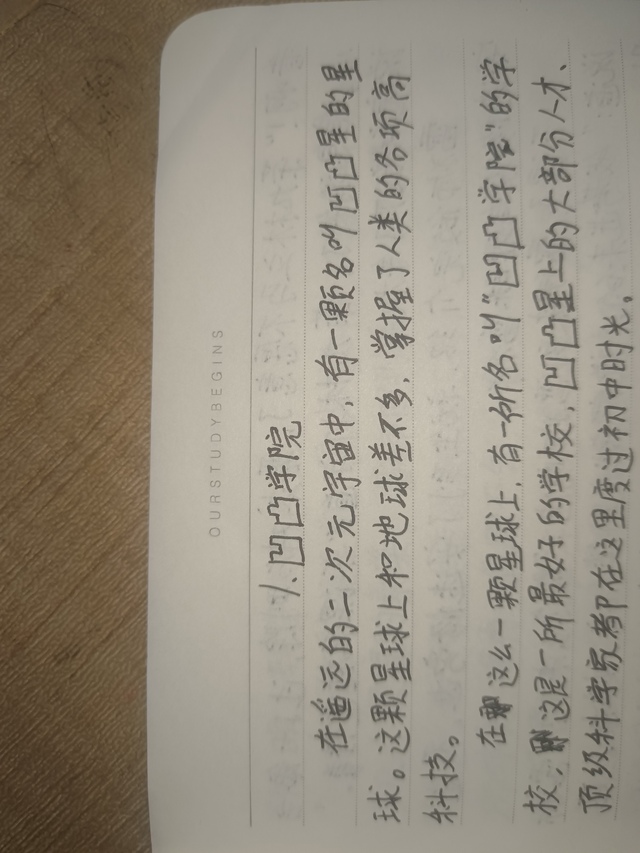 OURSTUDYBEGINS
1.凹凸学院
在遥远的二次元宇宙中，有一颗名叫凹凸星的星
球。这颗星球上和地球差不多，掌握了人类的各项高
科技。
在这么一颗星球上，有一所名叫"凹凸学院"的学
校，这是一所最好的学校，凹凸星上的大部分人才、
顶级科学家都在这里度过初中时光。